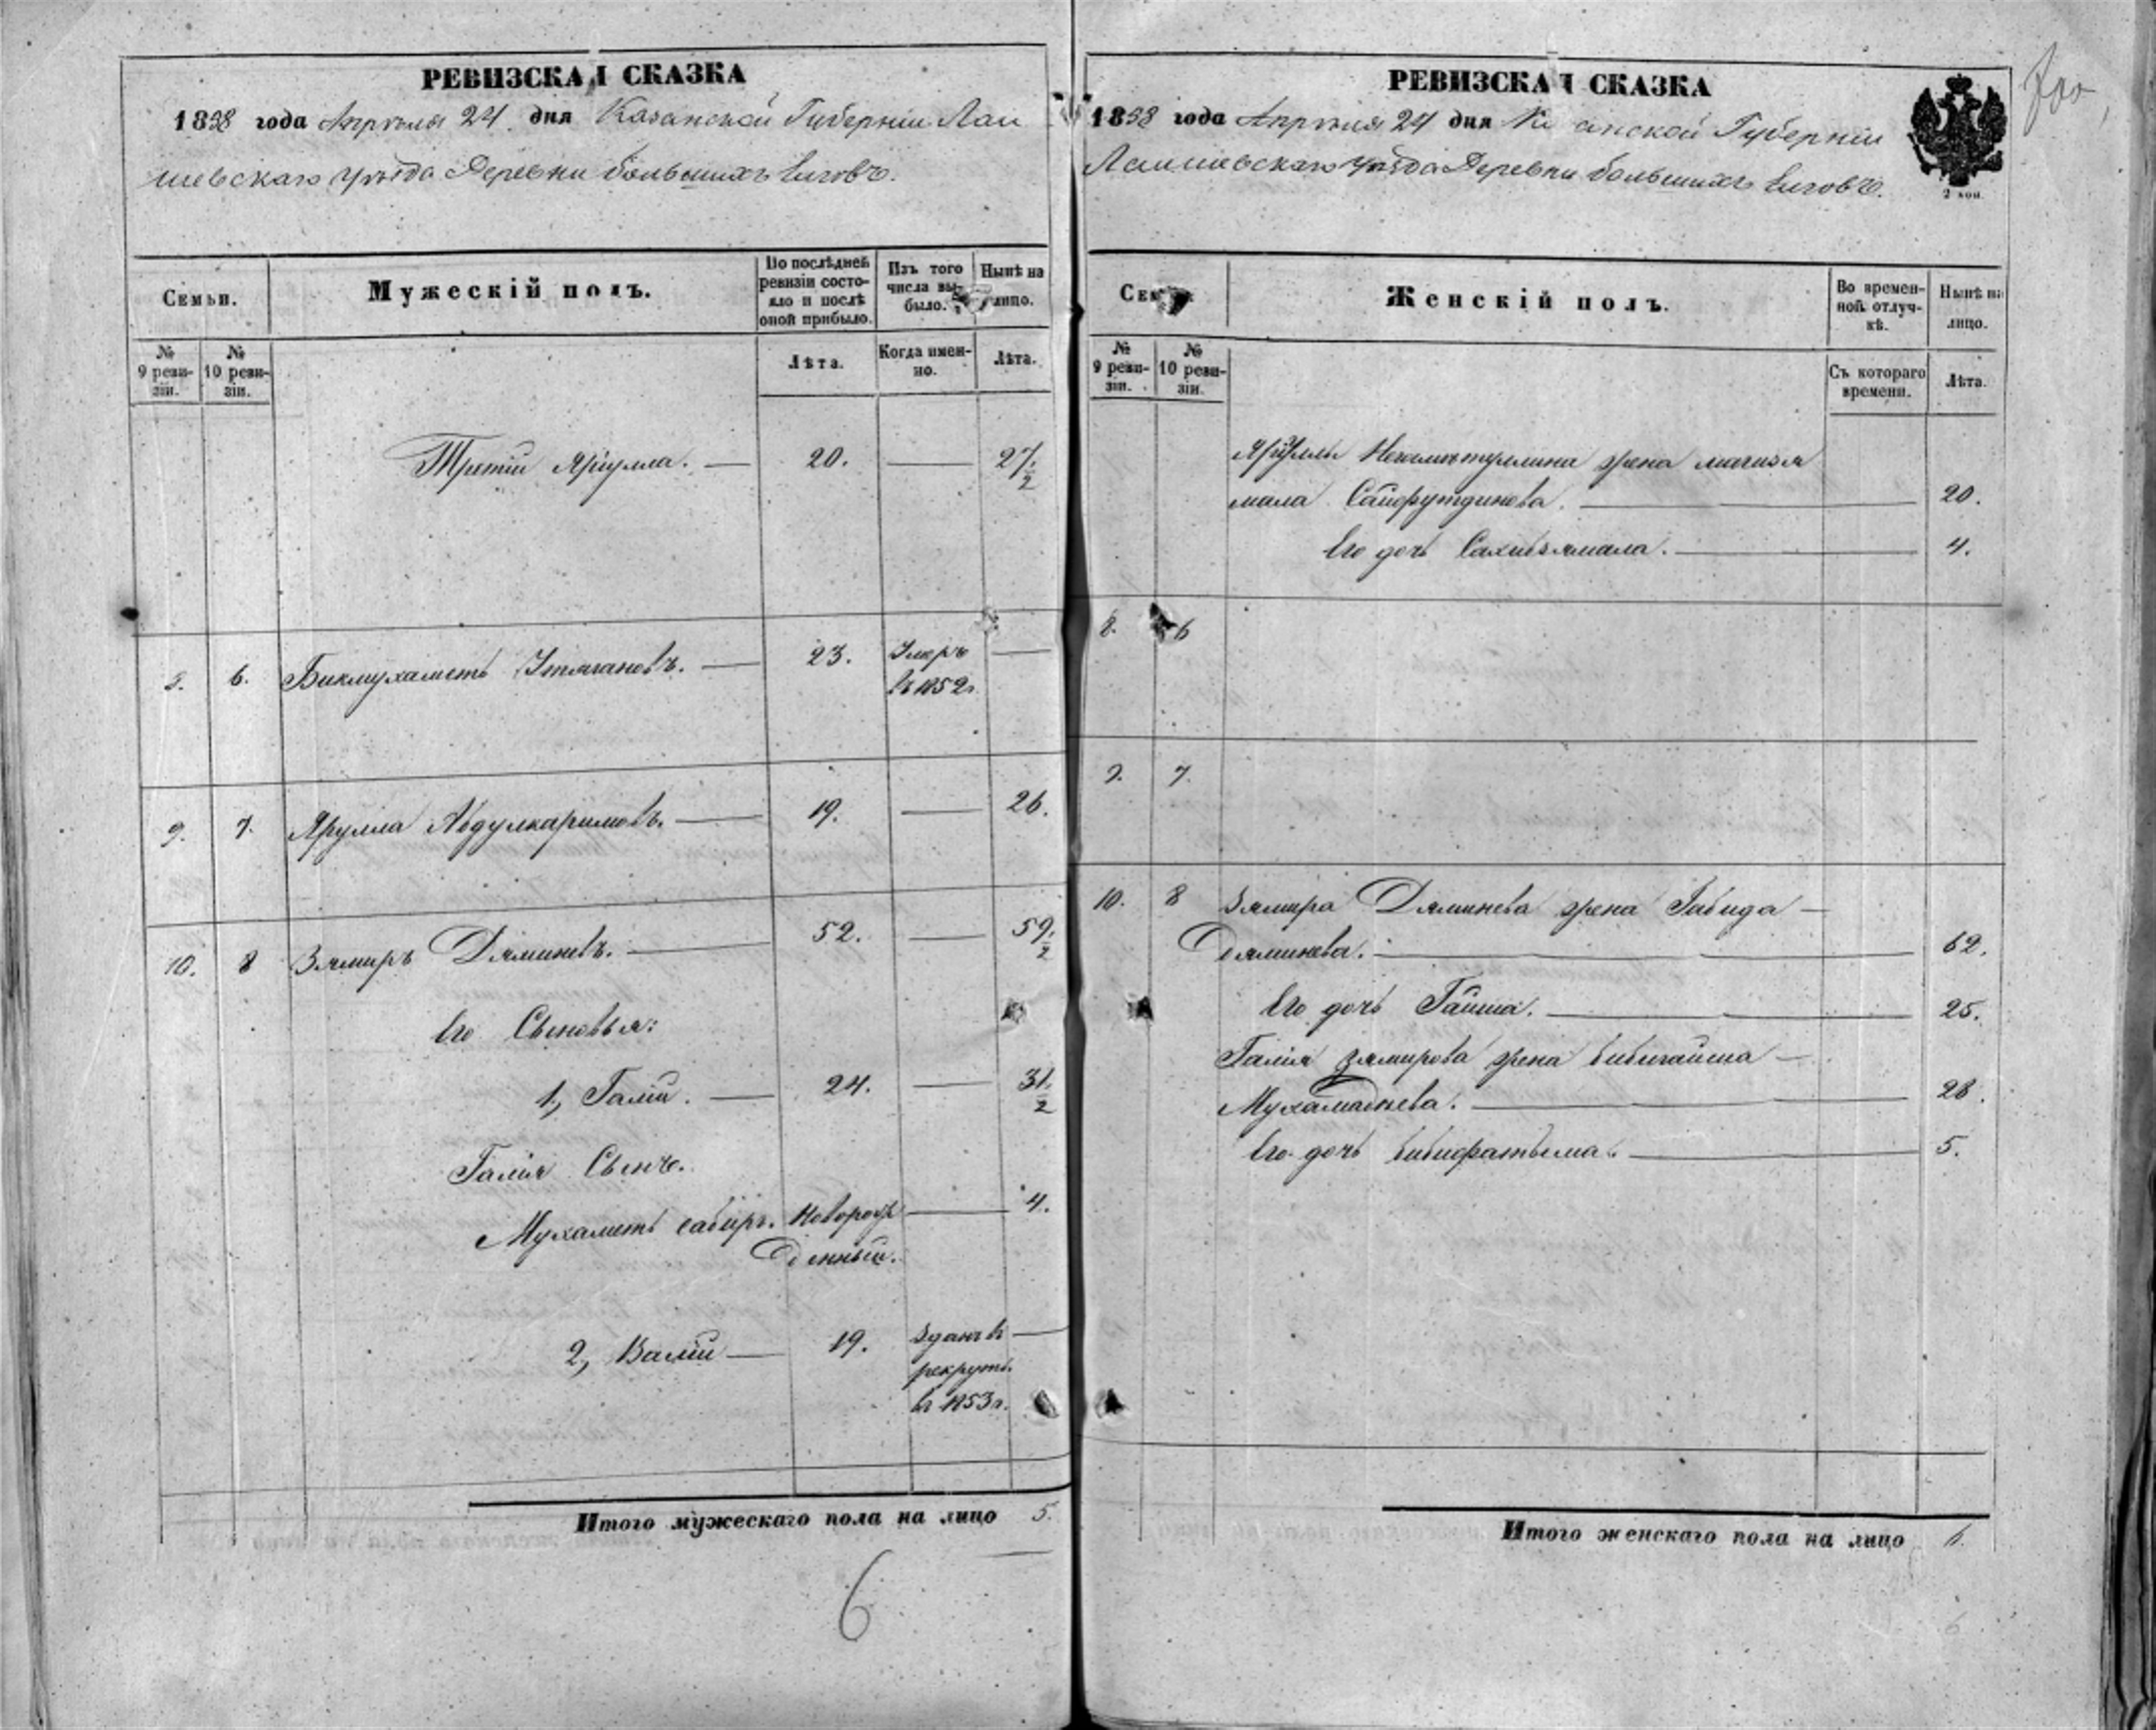 РЕВИЗСКАЯ СКАЗКА
1858 года Апрѣля 24 дня Казанской Губерніи Лаи
шевскаго уѣзда Деревни большихъ
Семьи.
Мужескій полъ.
По послѣдней ревизіи состояло и послѣ оной прибыло.
Изъ того числа выбыло.
Нынѣ на лицо.
№ 9 ревизіи.
№ 10 ревизіи.
Лѣта.
Когда именно.
Лѣта.
Третій Яруlла. — 20. — 27. 2
8. 6. Бикмухаметъ Утягановъ. — 23. Умеръ —
въ 1852 г.
9. 7. Ярулла Абдулкаримовъ. — 19. — 26.
10. 8 Зямиръ Дяминевъ. — 52. — 59. 2
Его Сыновья:
1, Галій. — 24. — 31. 2
Галія Сынъ.
Мухаметъ сабиръ. Новорож — 4.
денный.
2, Валій — 19. Зданъ въ —
рекруты.
въ 1853 г.
Итого мужескаго пола на лицо 5.
6
РЕВИЗСКАЯ СКАЗКА
1858 года Апрѣля 24 дня Ка анской Губерніи
Лаишевскаго уѣзда Деревни большихъ
2 коп.
700
Семьи.
Женскій полъ.
Во временной отлучкѣ.
Нынѣ на лицо.
№ 9 ревизіи.
№ 10 ревизіи.
Съ котораго времени.
Лѣта.
Яруллы жена
мала Сайфутдинова. — 20.
Его дочь Сахибзямала. — 4.
8. 6
9. 7.
10. 8 Зямира Дяминева жена Габида —
Дяминева. — 62.
Его дочь Гайша. — 25.
Галія Зямирова жена бибигайша —
Мухамадіева. — 28.
Его дочь бибифатыма. — 5.
Итого женскаго пола на лицо 6.